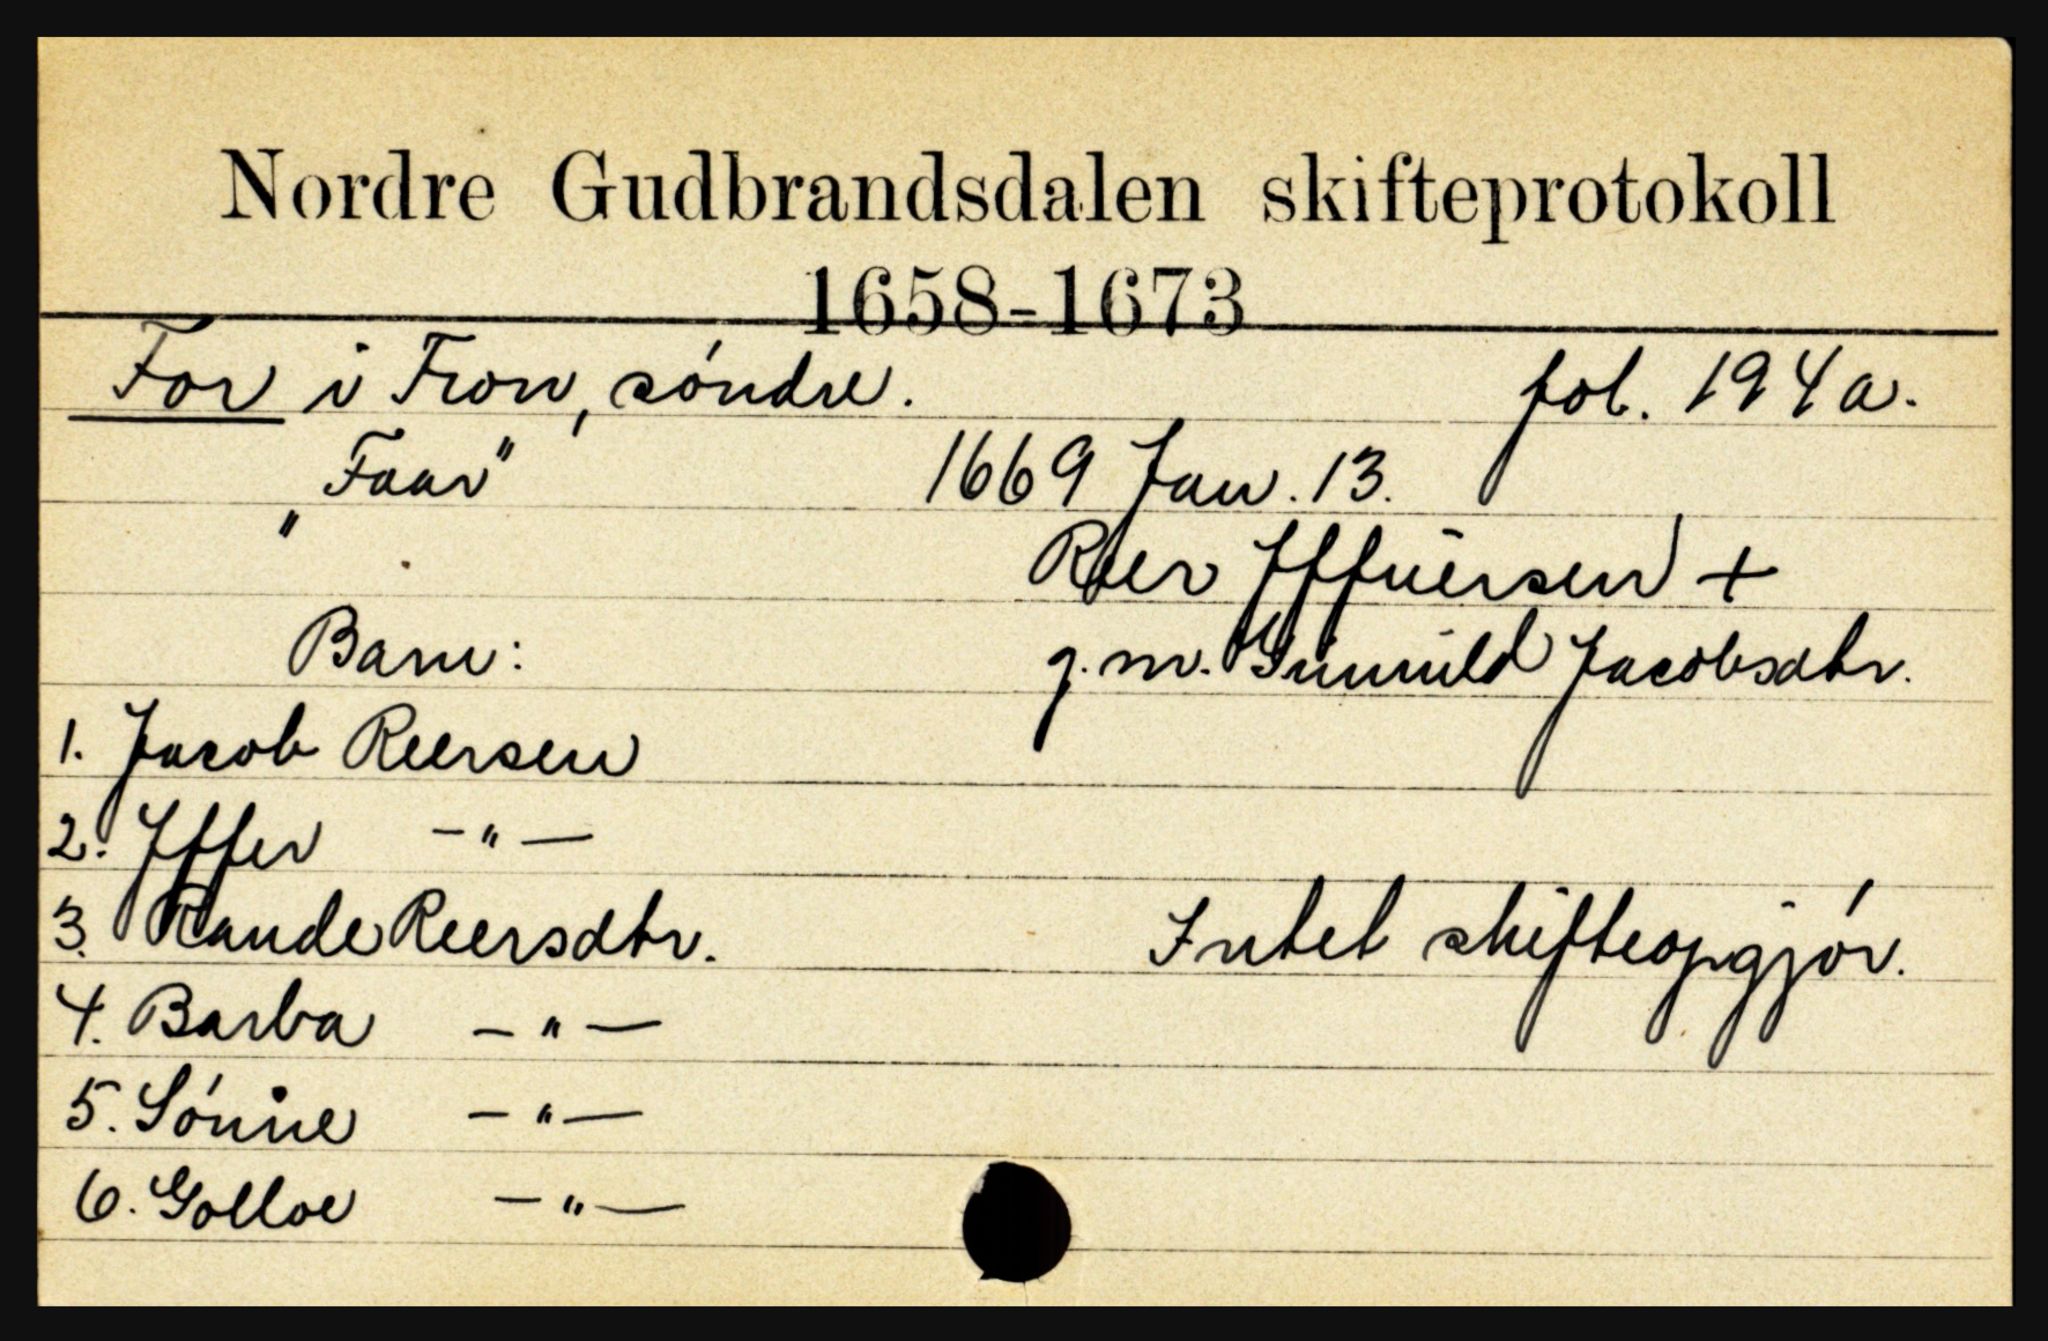 Nordre Gudbrandsdalen skifteprotokoll
1658-1673
For i Fron, søndre. fol. 194a.
"Faar" 1669 Jan. 13.
Reer Iffuersen +
Barn: g.m. Gunnild Jacobsdtr.
1. Jacob Reersen
2. Iffer -"-
3. Rande Reersdtr. Intet skifteopgjør.
4. Barba -"-
5. Sønne -"-
6. Golloe -"-